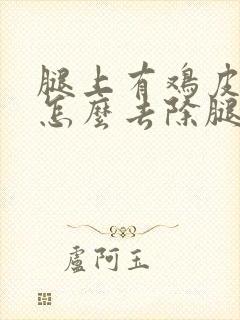 腿上有鸡皮
怎麼去除腿
盧阿玉